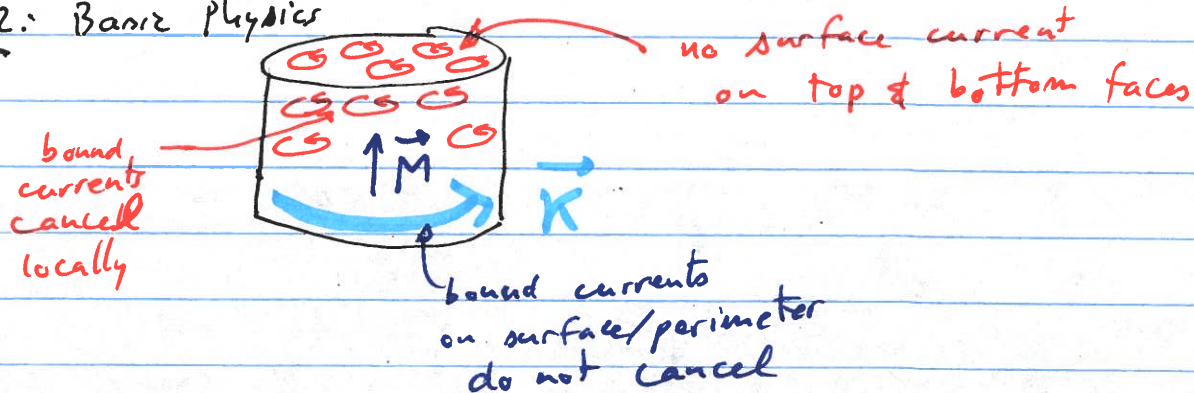 2: Basic Physics
no surface current
on top & bottom faces
bound
currents
cancel
locally
M
K
bound currents
on surface/perimeter
do not cancel